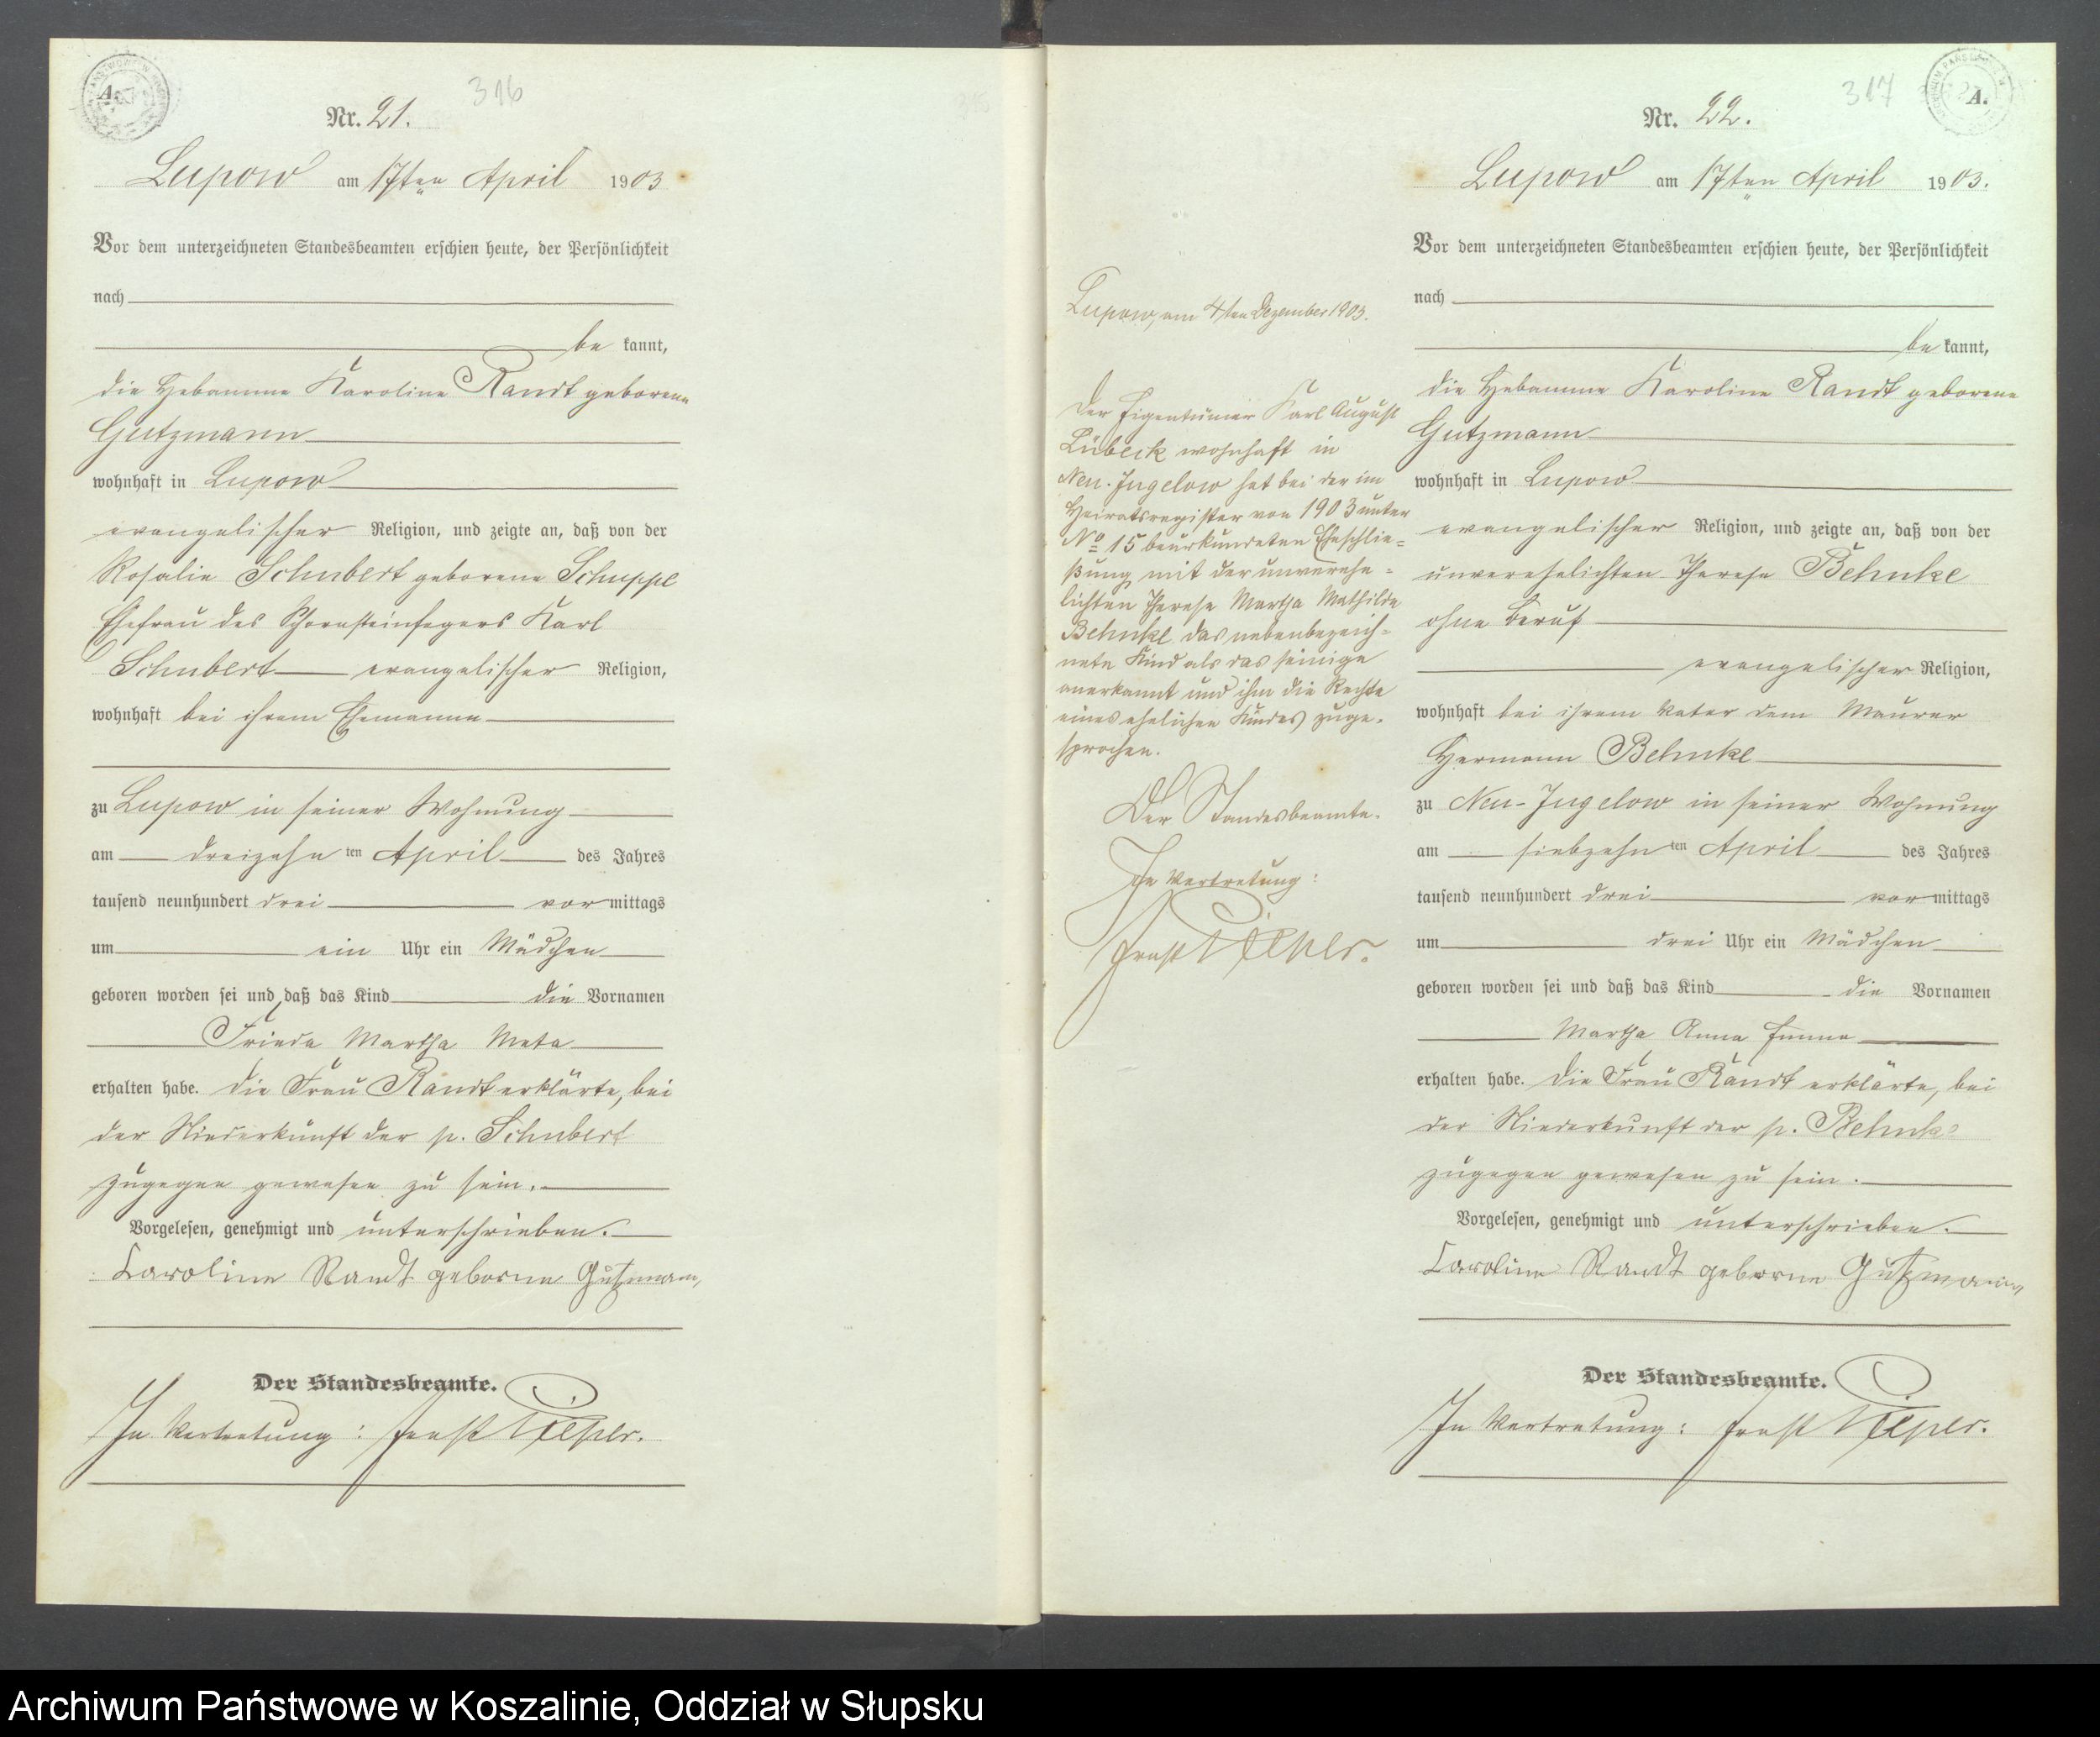 316
A.
Nr. 21.
Lupow am 17ten April 1903
Vor dem unterzeichneten Standesbeamten erschien heute, der Persönlichkeit
nach
be kannt,
die Hebamme Karoline Randt geborene
Gutzmann
wohnhaft in Lupow
evangelischer Religion, und zeigte an, daß von der
Rosalie Schubert geborene Schuppe
Ehefrau des Schornsteinfegers Karl
Schubert evangelischer Religion,
wohnhaft bei ihrem Ehemanne
zu Lupow in seiner Wohnung
am dreizehn ten April des Jahres
tausend neunhundert drei vor mittags
um ein Uhr ein Mädchen
geboren worden sei und daß das Kind die Vornamen
Frieda Martha Meta
erhalten habe. Die Frau Randt erklärte, bei
der Niederkunft der p. Schubert
zugegen gewesen zu sein.
Vorgelesen, genehmigt und unterschrieben.
Caroline Randt geborne Gutzmann,
Der Standesbeamte.
In Vertretung: Ernst Pieper.
317
A.
Nr. 22.
Lupow am 17ten April 1903.
Vor dem unterzeichneten Standesbeamten erschien heute, der Persönlichkeit
nach
be kannt,
die Hebamme Karoline Randt geborene
Gutzmann
wohnhaft in Lupow
evangelischer Religion, und zeigte an, daß von der
unverehelichten Therese Behnke
ohne Beruf
evangelischer Religion,
wohnhaft bei ihrem Vater dem Maurer
Hermann Behnke
zu Neu-Jugelow in seiner Wohnung
am siebzehn ten April des Jahres
tausend neunhundert drei vor mittags
um drei Uhr ein Mädchen
geboren worden sei und daß das Kind die Vornamen
Martha Anna Emma
erhalten habe. Die Frau Randt erklärte, bei
der Niederkunft der p. Behnke
zugegen gewesen zu sein.
Vorgelesen, genehmigt und unterschrieben.
Caroline Randt geborne Gutzmann,
Der Standesbeamte.
In Vertretung: Ernst Pieper.
Lupow, am 4ten Dezember 1903.
Der Eigentümer Karl August
Lübeck wohnhaft in
Neu-Jugelow hat bei der im
Heiratsregister von 1903 unter
No 15 beurkundeten Eheschlie=
ßung mit der unverehe=
lichten Therese Martha Mathilde
Behnke das nebenbezeich=
nete Kind als das seinige
anerkannt und ihm die Rechte
eines ehelichen Kindes zuge=
sprochen.
Der Standesbeamte.
In Vertretung:
Ernst Pieper.
Archiwum Państwowe w Koszalinie, Oddział w Słupsku